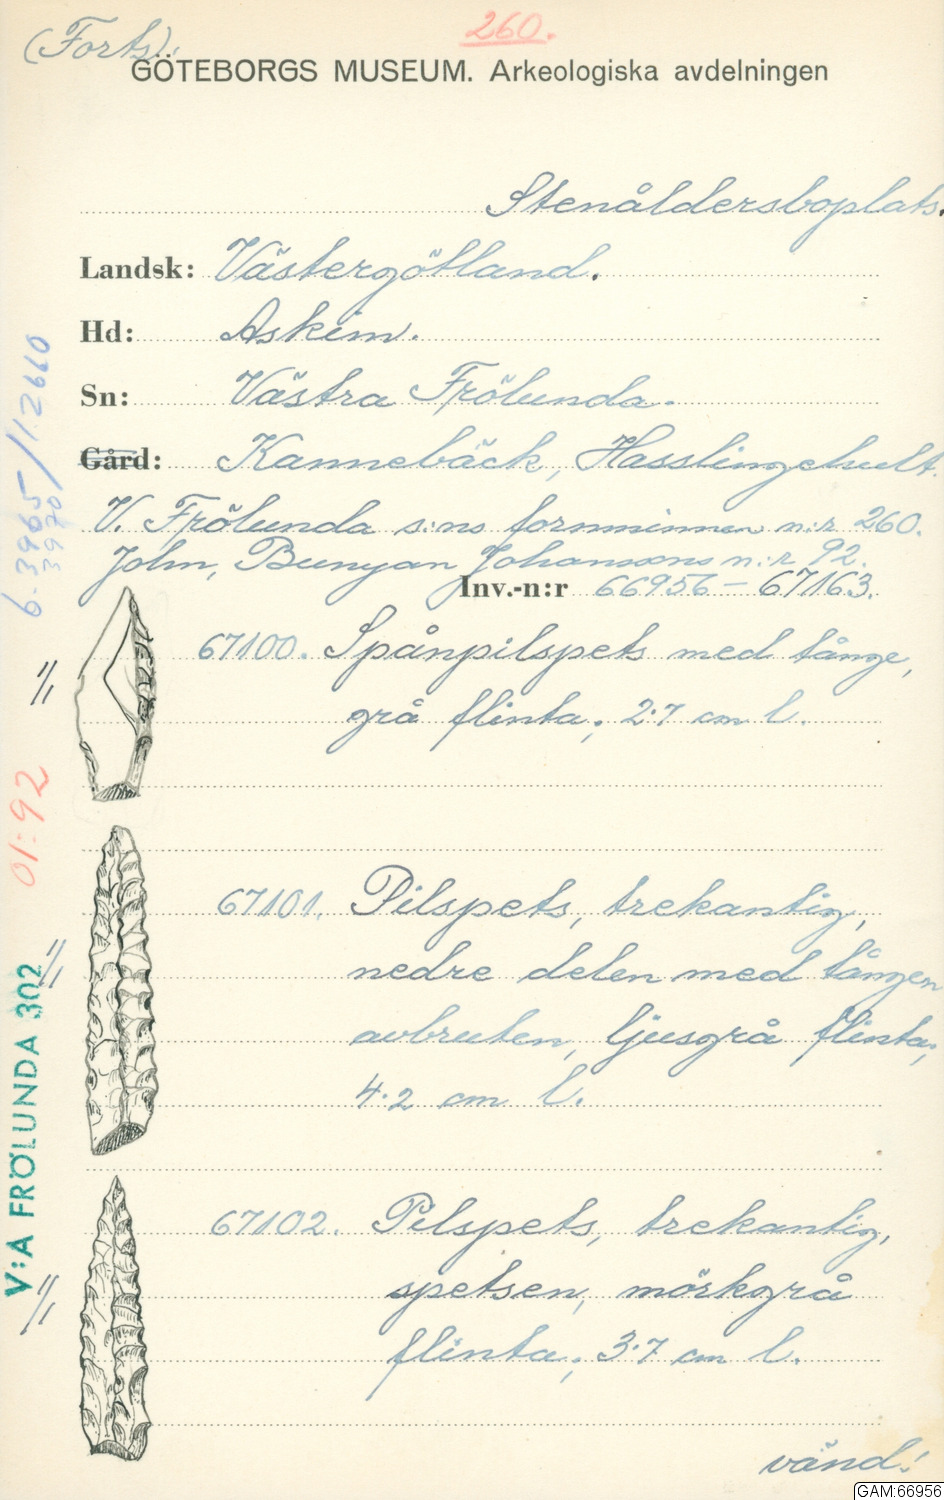 (Forts).
260.
GÖTEBORGS MUSEUM. Arkeologiska avdelningen
Stenåldersboplats.
Landsk: Västergötland.
Hd: Askim.
Sn: Västra Frölunda.
Gård: Kannebäck, Hasslingehult.
V. Frölunda s:ns fornminnen n:r 260.
John, Bunyan Johanssons n:r 92.
Inv.-n:r 66956 – 67163.
67100. Spånpilspets med tånge,
1/1
grå flinta; 2.7 cm l.
67101. Pilspets, trekantig,
nedre delen med tången
1/1
avbruten, ljusgrå flinta;
4.2 cm l.
67102. Pilspets, trekantig,
spetsen, mörkgrå
1/1
flinta; 3.7 cm l.
vänd!
6.3965/12660
3970
01:92
V:A FRÖLUNDA 302
GAM:66956